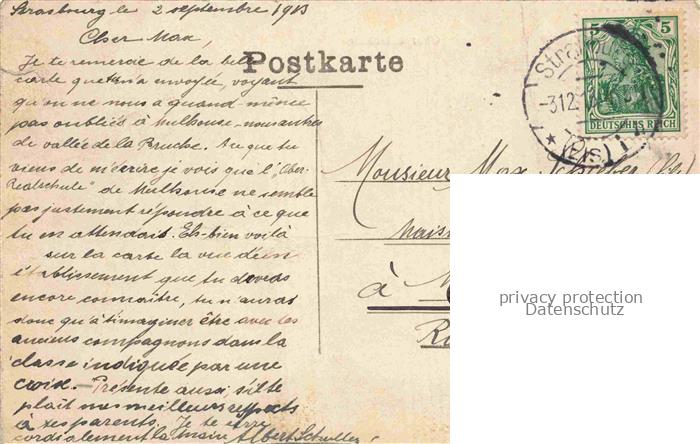 Strasbourg le 2 septembre 1913
Cher Max,
Je te remercie de la belle
Postkarte
carte que tu m'a envoyée, voyant
qu'on ne nous a quand même
pas oublié à Mulhouse – nous autres
de vallée de la Bruche. A ce que tu
viens de m'écrire je vois que l'„Ober-
Realschule" de Mulhouse ne semble
pas justement répondre à ce que
tu en attendais. Eh-bien voilà
sur la carte la vue d'un
établissement que tu devras
encore connaître, tu n'auras
donc qu'à t'imaginer être avec les
anciens compagnons dans la
classe indiquée par une
croix. – Présente aussi, s'il te
plaît mes meilleurs respects
à tes parents. Je te serre
cordialement la main Albert Schuller
5 5
DEUTSCHES REICH
(ELS)
Monsieur Max
à
privacy protection
Datenschutz